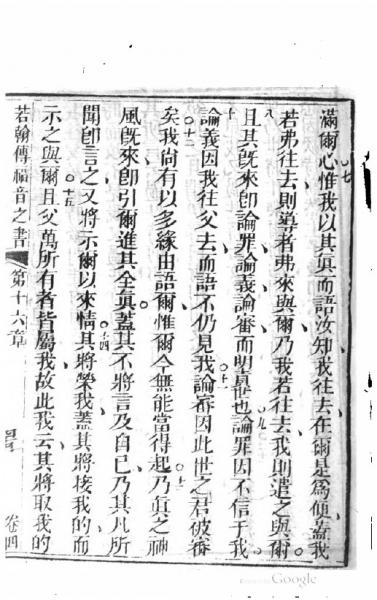 滿爾心惟我以其真而語汝知我往去在爾是為便蓋我
若弗往去則導者弗來與爾乃我若往去我則遣之與爾
且其既來即論罪論義論審而明矗也論罪因不信于我
論義因我往父去而語不仍見我論審因此世之君彼審
矣我尚有以多緣由語爾惟爾今無能當得起乃真之神
風既來即引爾進其全真蓋其不將言及自己乃其凡所
聞即言之又將示爾以來情其將榮我蓋其將接我的而
示之與爾且父萬所有者皆屬我故此我云其將取我的
若翰傳福音之書 第十六章 卷四
七
八
九
十
十一
十二
十三
十四
十五
Google